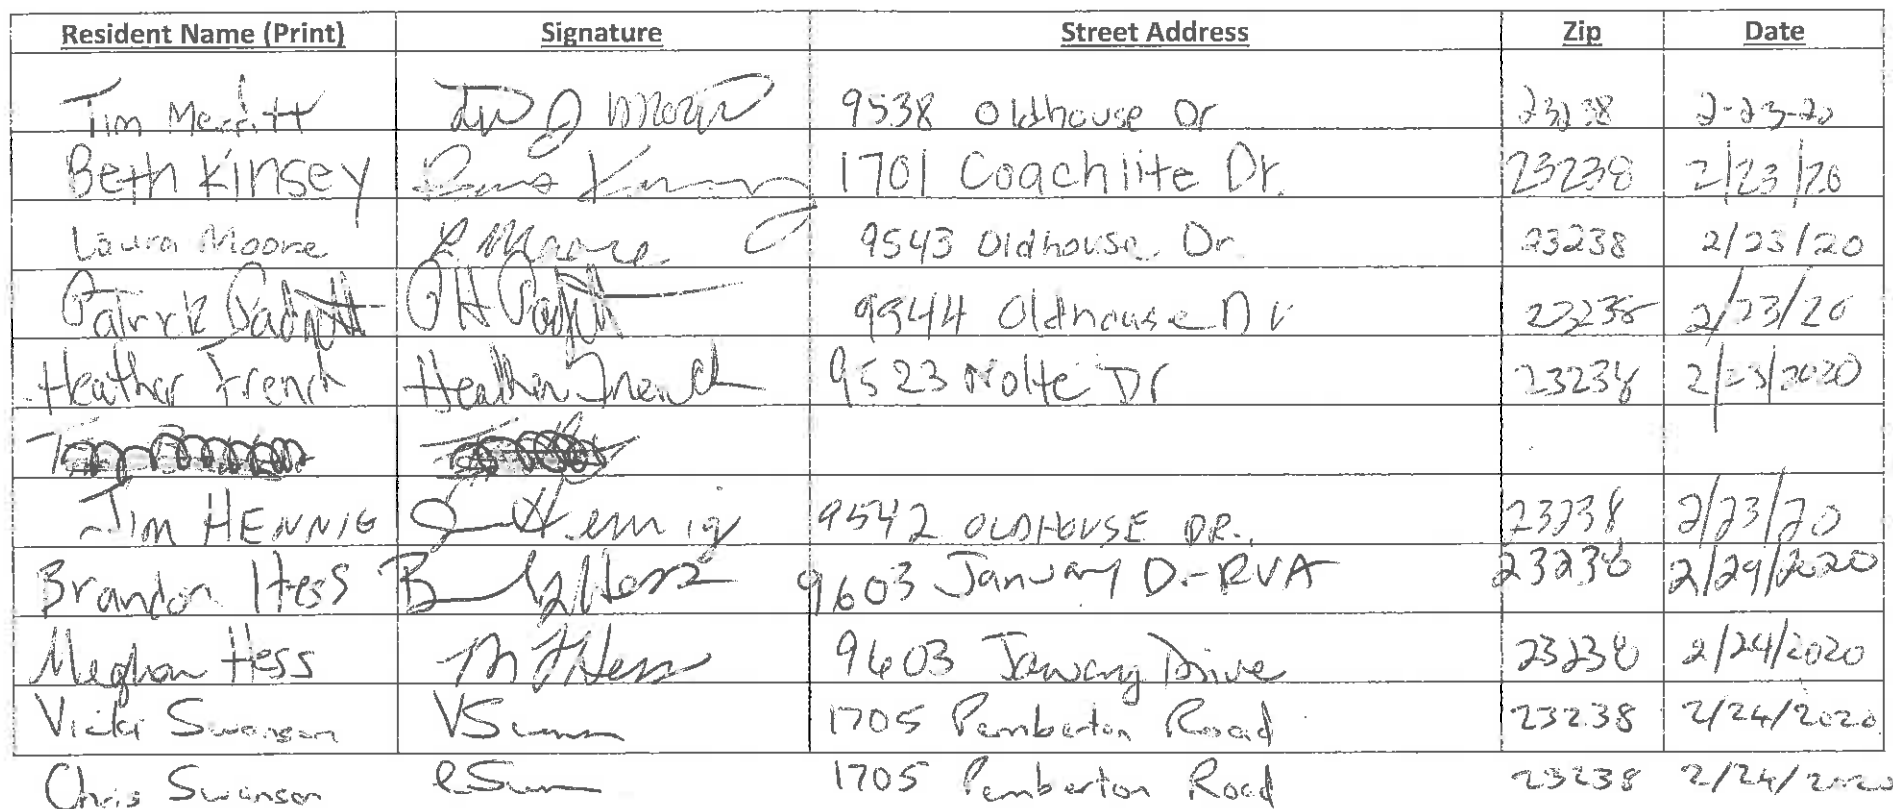 Resident Name (Print) Signature Street Address Zip Date
Tim Merritt 9538 Oldhouse Dr 23238 2-23-20
Beth Kinsey 1701 Coachlite Dr. 23238 2/23/20
Laura Moore L Moore 9543 Oldhouse Dr. 23238 2/23/20
Patrick Padgett PH Padgett 9544 Oldhouse Dr 23238 2/23/20
Heather French Heather French 9523 Nolte Dr 23238 2/23/2020
Jim HENNIG Hennig 9542 OLDHOUSE DR. 23238 2/23/20
Brandon Hess B Hess 9603 January Dr RVA 23238 2/29/2020
Meghan Hess M Hess 9603 January Drive 23238 2/24/2020
Vicki Swanson 1705 Pemberton Road 23238 2/24/2020
Chris Swanson 1705 Pemberton Road 23238 2/24/2020